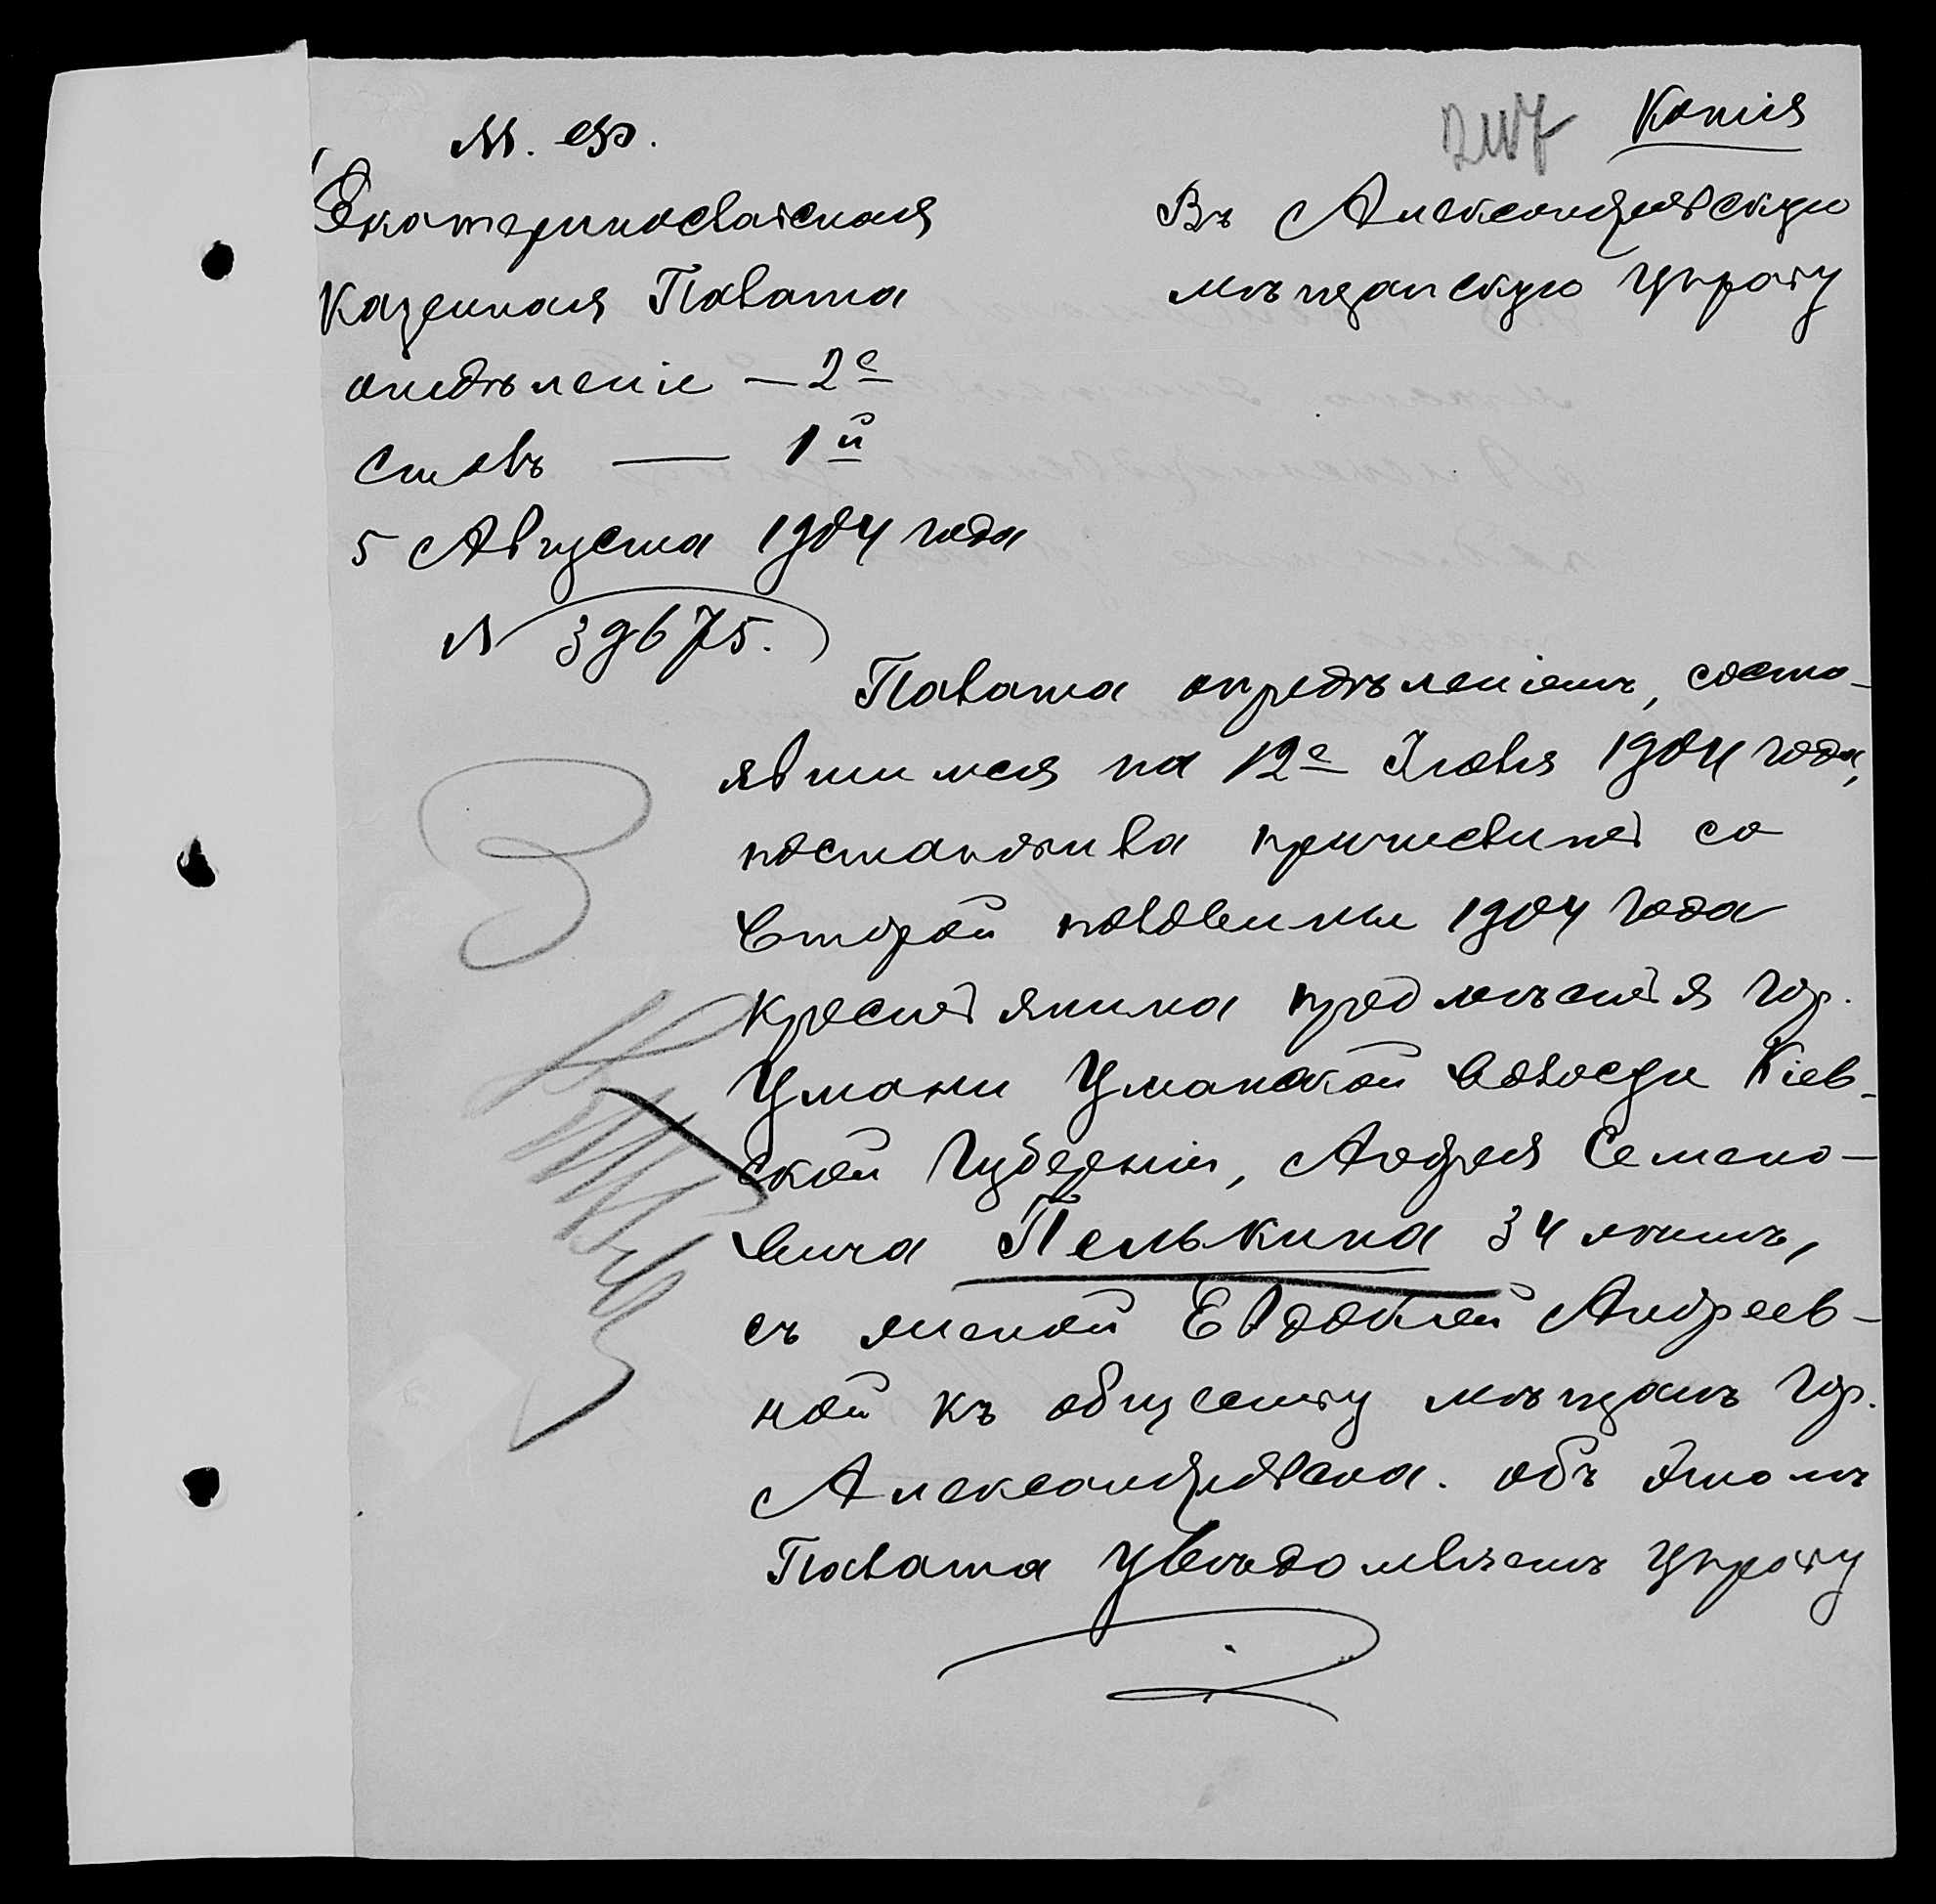 Копія
М. Ф.
Екатеринославская
Казенная Палата
отдѣленіе — 2е
столъ — 1й
5 Августа 1904 года
№ 39675.
Въ Александровскую
мѣщанскую управу
Палата опредѣленіемъ, состо-
явшимся на 12е Іюля 1904 года,
постановила причислить со
второй половины 1904 года
крестьянина предмѣстья гор.
Умани Уманской волости Кіев-
ской губерніи, Андрея Семено-
вича Пелькина 34 лѣтъ,
съ женой Евдокіей Андреев-
ной къ обществу мѣщанъ гор.
Александровска. Объ этомъ
Палата увѣдомляетъ управу